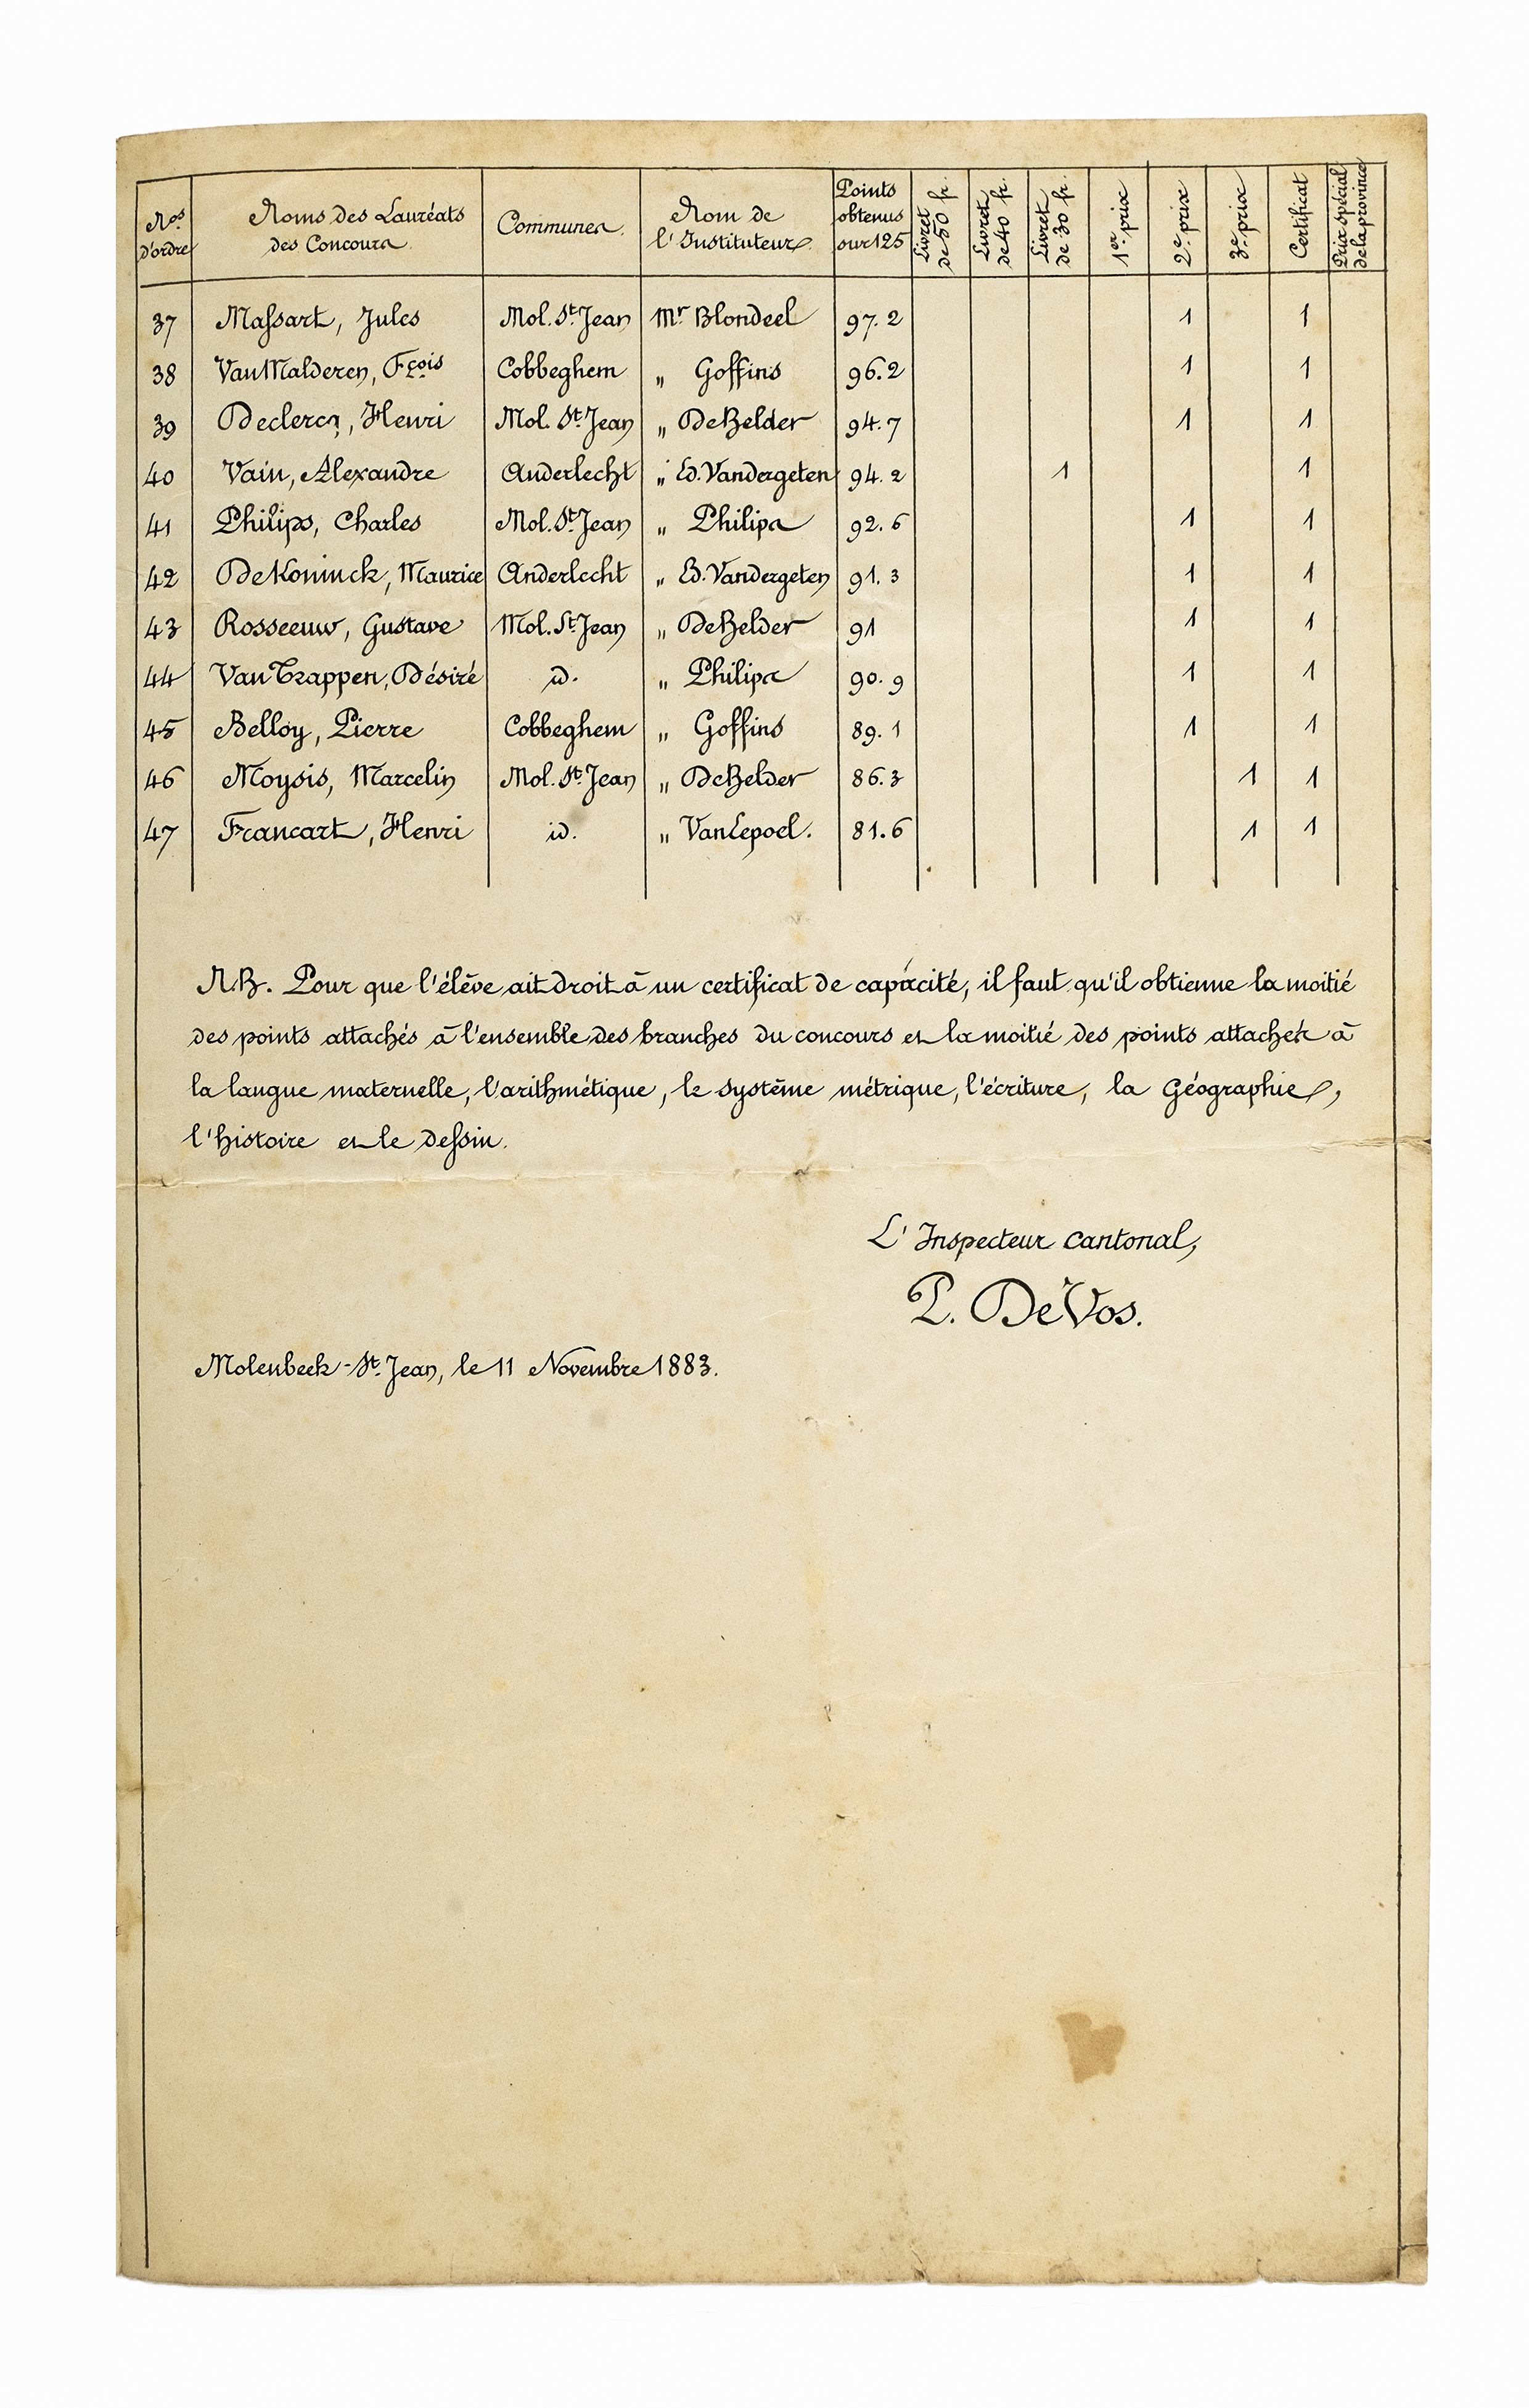 Nos d'ordre | Noms des Lauréats des Concours | Communes. | Nom de l'Instituteur. | Points obtenus sur 125 | Livret de 50 fr. | Livret de 40 fr. | Livret de 30 fr. | 1er prix | 2e prix | 3e prix | Certificat | Prix spécial de la province
37 Massart, Jules Mol. St. Jean Mr Blondeel 97.2 1 1
38 Van Malderen, Fçois Cobbeghem " Goffins 96.2 1 1
39 Declercq, Henri Mol. St. Jean " De Belder 94.7 1 1
40 Vain, Alexandre Anderlecht " Ed. Vandergeten 94.2 1 1
41 Philips, Charles Mol. St. Jean " Philips 92.6 1 1
42 De Koninck, Maurice Anderlecht " Ed. Vandergeten 91.3 1 1
43 Rosseeuw, Gustave Mol. St. Jean " De Belder 91 1 1
44 Van Trappen, Désiré id. " Philips 90.9 1 1
45 Belloy, Pierre Cobbeghem " Goffins 89.1 1 1
46 Moysis, Marcelin Mol. St. Jean " De Belder 86.3 1 1
47 Francart, Henri id. " Van Lepoel. 81.6 1 1
N.B. Pour que l'élève ait droit à un certificat de capacité, il faut qu'il obtienne la moitié
des points attachés à l'ensemble des branches du concours et la moitié des points attachés à
la langue maternelle, l'arithmétique, le système métrique, l'écriture, la Géographie,
l'histoire et le dessin.
L'Inspecteur cantonal,
P. De Vos.
Molenbeek-St. Jean, le 11 Novembre 1883.